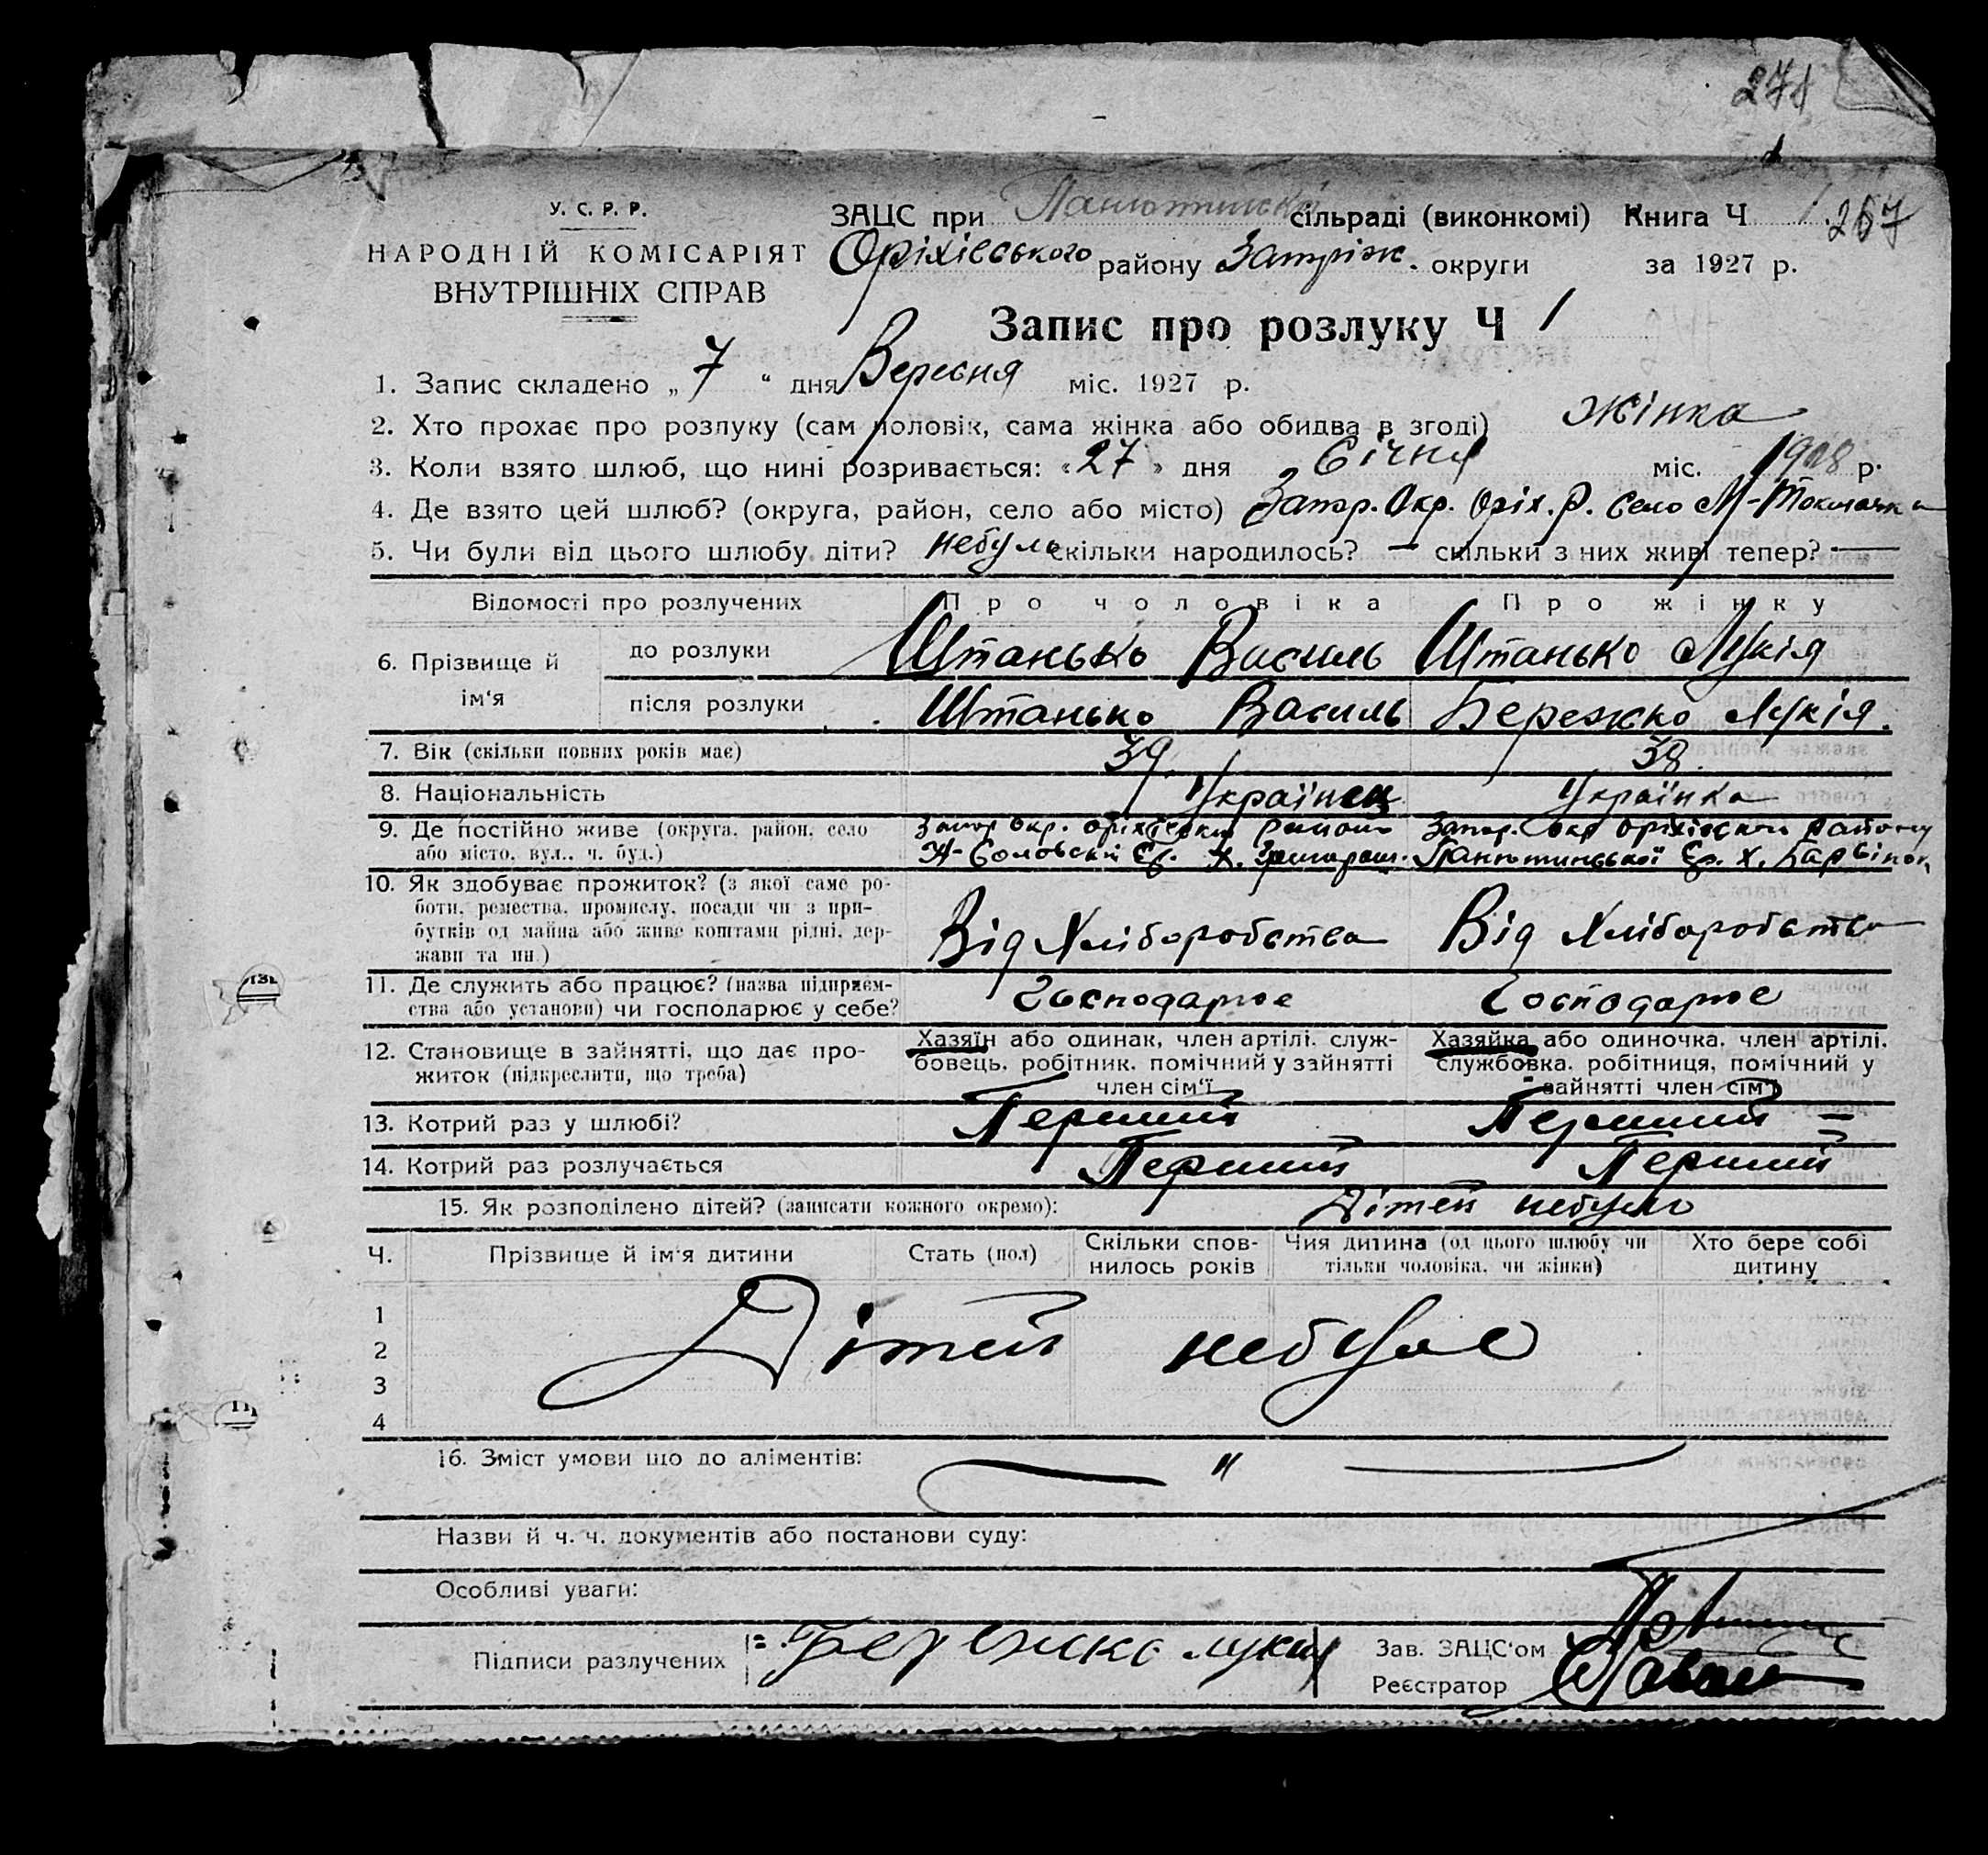 271
У. С. Р. Р.
НАРОДНІЙ КОМІСАРІЯТ
ВНУТРІШНІХ СПРАВ
ЗАЦС при Панютинській сільраді (виконкомі) Книга Ч 1. 267
Оріхівського району Запріж. округи за 1927 р.
Запис про розлуку Ч 1
1. Запис складено „ 7 “ дня Вересня міс. 1927 р.
2. Хто прохає про розлуку (сам чоловік, сама жінка або обидва в згоді) жінка
3. Коли взято шлюб, що нині розривається: «27» дня Січня міс. 1908 р.
4. Де взято цей шлюб? (округа, район, село або місто) Запор. Окр. Оріх. Р. Село М-Токмачка
5. Чи були від цього шлюбу діти? небуло скільки народилось? — скільки з них живі тепер? —
Відомості про розлучених Про чоловіка Про жінку
6. Прізвище й ім‘я
до розлуки Штанько Василь Штанько Лукія
після розлуки Штанько Василь Бережко Лукія.
7. Вік (скільки повних років має) 39 38.
8. Національність Українец Українка
9. Де постійно живе (округа, район, село або місто, вул., ч. буд.)
Запор Окр. Оріхівськи Району
Ср. Х.
Запор. Окр Оріхівського Району
Панютинської Ср. Х. Барвінок
10. Як здобуває прожиток? (з якої саме ро-
боти, ремества, промислу, посади чи з при-
бутків од майна або живе коштами рідні, дер-
жави та ин.)
Від Хліборобства Від Хліборобства
11. Де служить або працює? (назва підприєм-
ства або установи) чи господарює у себе?
Господарює Господарює
12. Становище в зайнятті, що дає про-
житок (підкреслити, що треба)
Хазяїн або одинак, член артілі, служ-
бовець, робітник, помічний у зайнятті
член сім‘ї
Хазяйка або одиночка, член артілі,
службовка, робітниця, помічний у
зайнятті член сім‘ї
13. Котрий раз у шлюбі? Перший Перший =
14. Котрий раз розлучається Перший Перший
15. Як розподілено дітей? (записати кожного окремо): Дітей небуло
Ч. Прізвище й ім‘я дитини Стать (пол) Скільки спов-
нилось років Чия дитина (од цього шлюбу чи
тільки чоловіка, чи жінки) Хто бере собі
дитину
1
2
3
4
Дітей небуло
16. Зміст умови що до аліментів: — " —
Назви й ч. ч. документів або постанови суду:
Особливі уваги:
Підписи разлучених Бережко лукия
Зав. ЗАЦС‘ом
Реєстратор